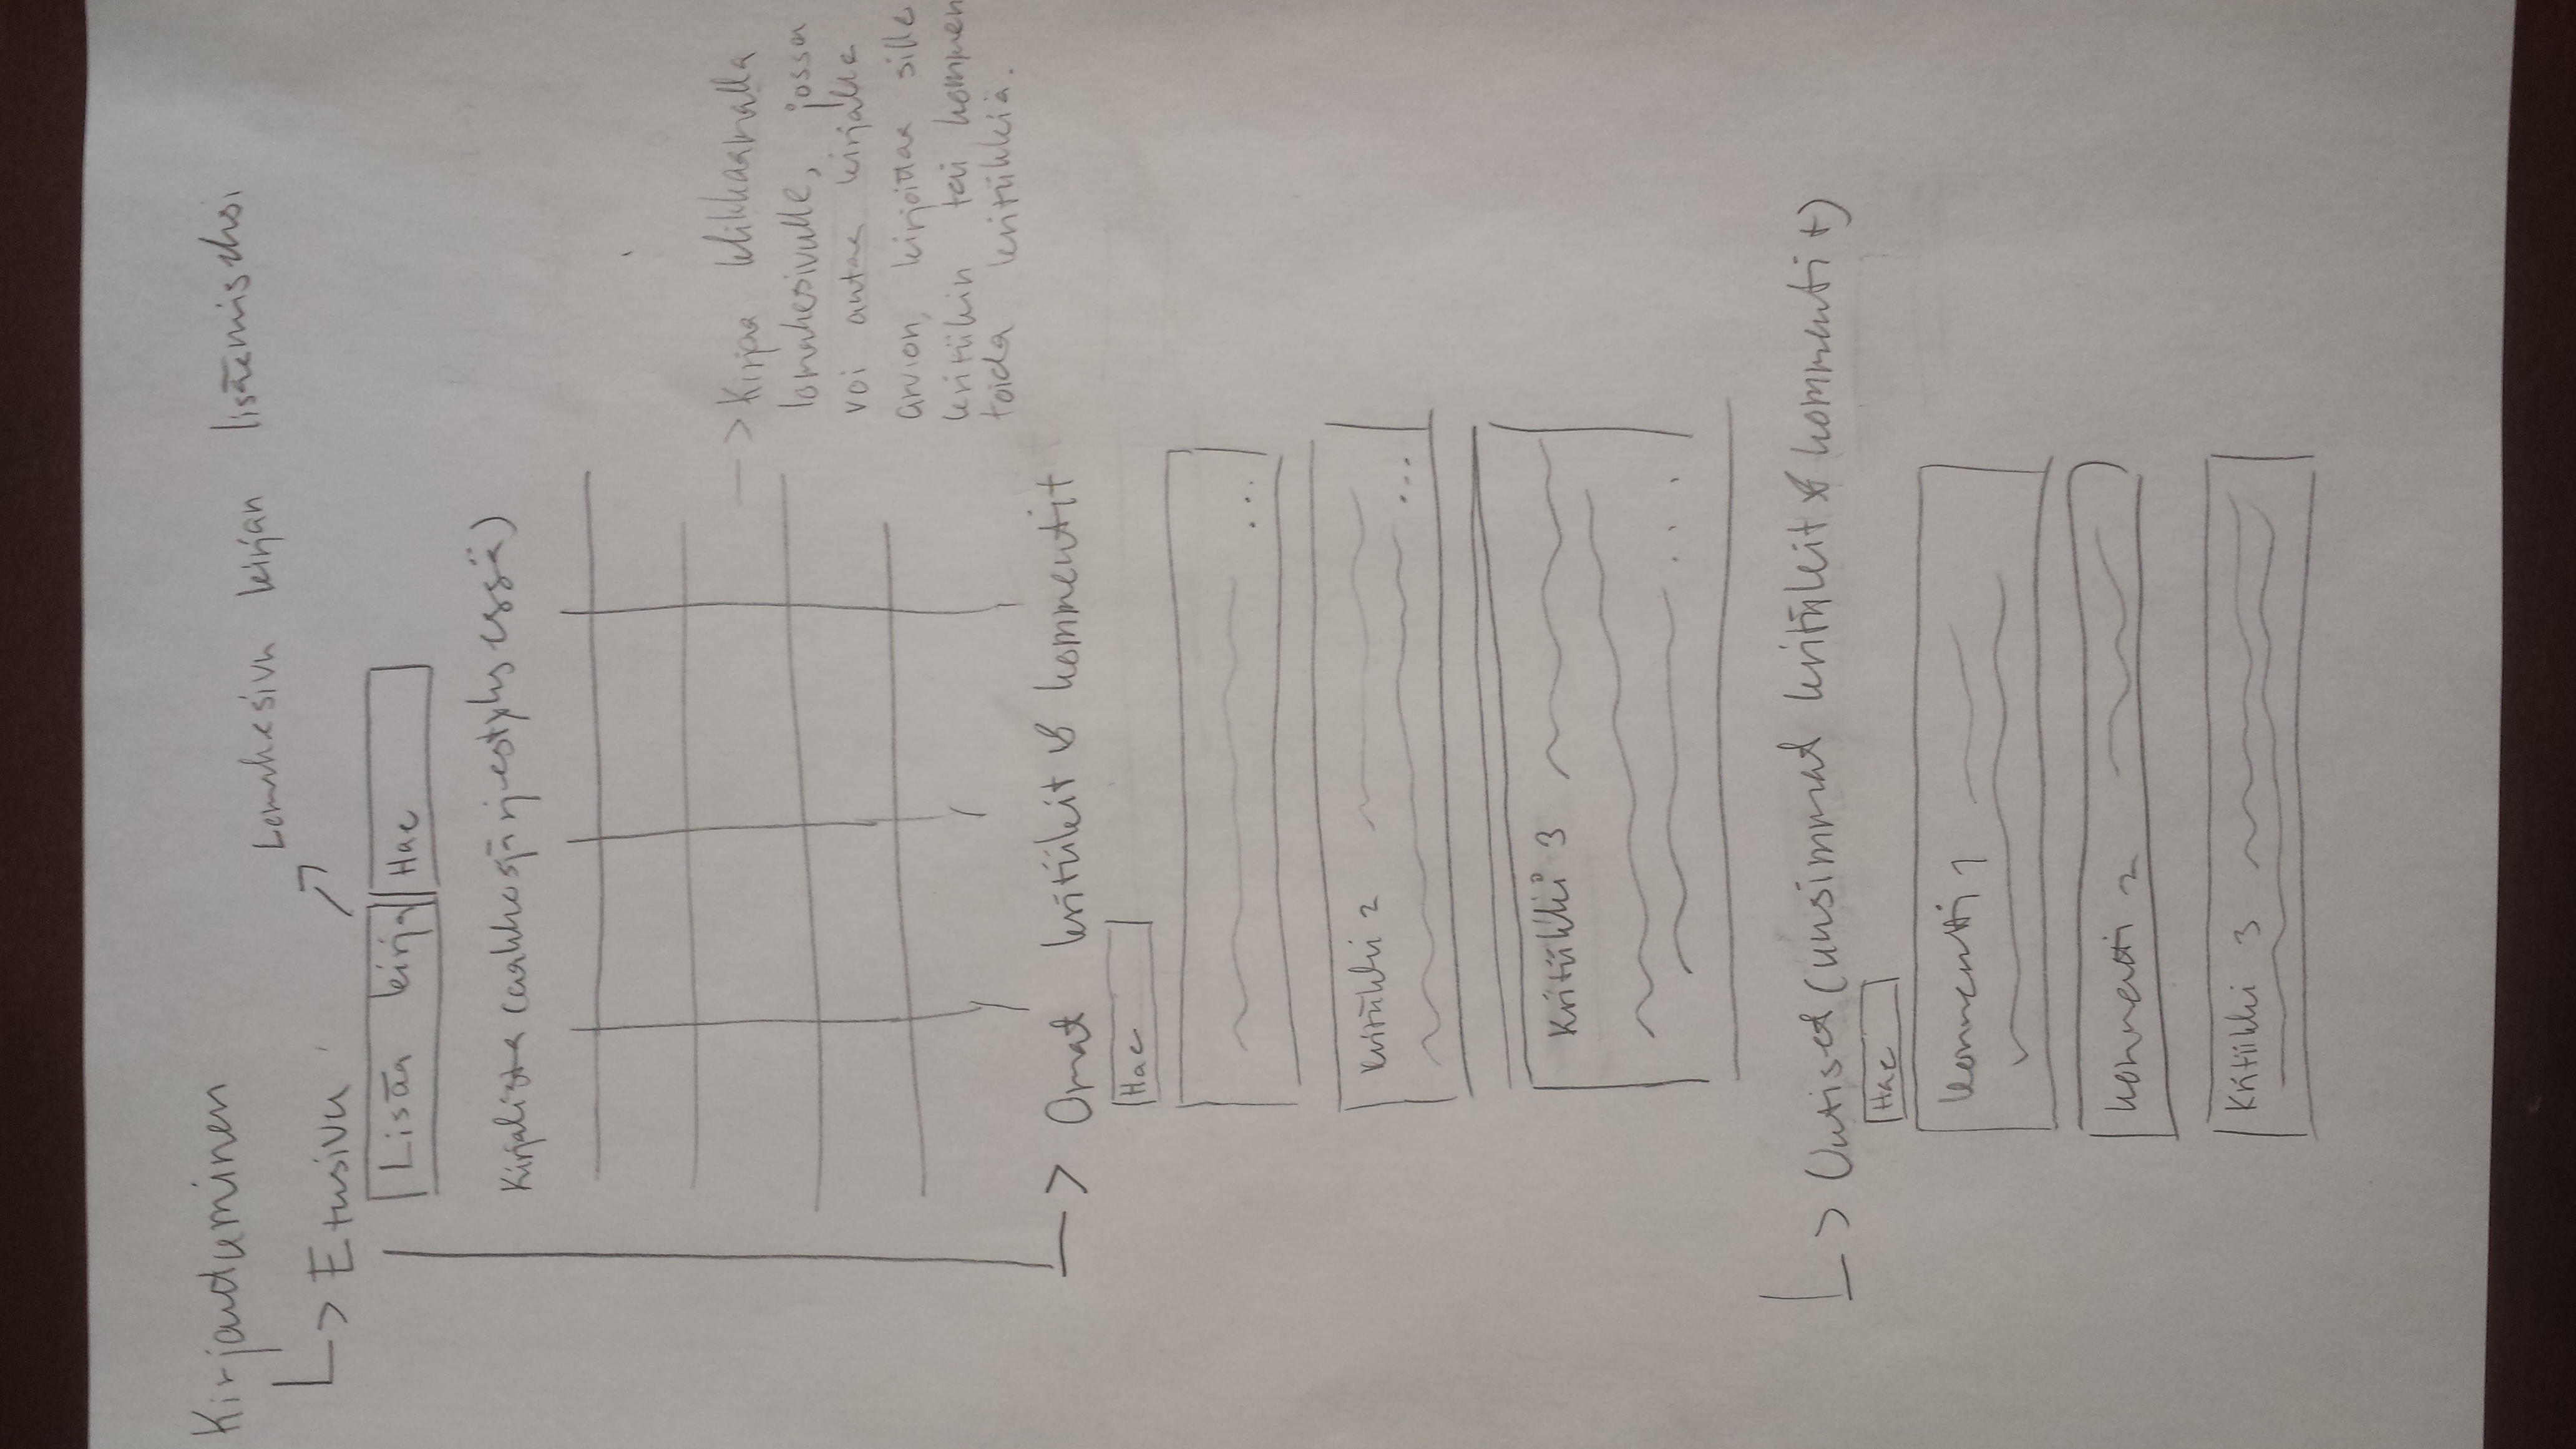 Kirjautuminen
Lomakesivu kirjan lisäämiseksi
Etusivu
Lisää kirja
Hae
Kirjalista (aakkosjärjestyksessä)
Kirjaa klikkaamalla
lomakesivulle, jossa
voi antaa kirjalle
arvion, kirjoittaa sille
kritiikin tai kommen
toida kritiikkiä.
Omat kritiikit & kommentit
Hae
Kritiikki 2
Kritiikki 3
Uutiset (uusimmat kritiikit & kommentit)
Hae
Kommentti 1
Kommentti 2
Kritiikki 3